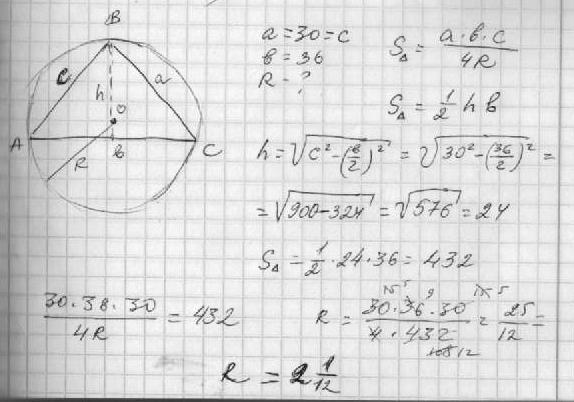 B
c a
h
O
A b C
R
a = 30 = c
b = 36
R - ?
S△ = a·b·c / 4R
S△ = 1/2 h b
h = √(c² - (b/2)²) = √(30² - (36/2)²) =
= √(900-324) = √576 = 24
S△ = 1/2 · 24 · 36 = 432
30·38·30 / 4R = 432
R = 30·36·30 / 4·432 = 25/12 =
R = 2 1/12